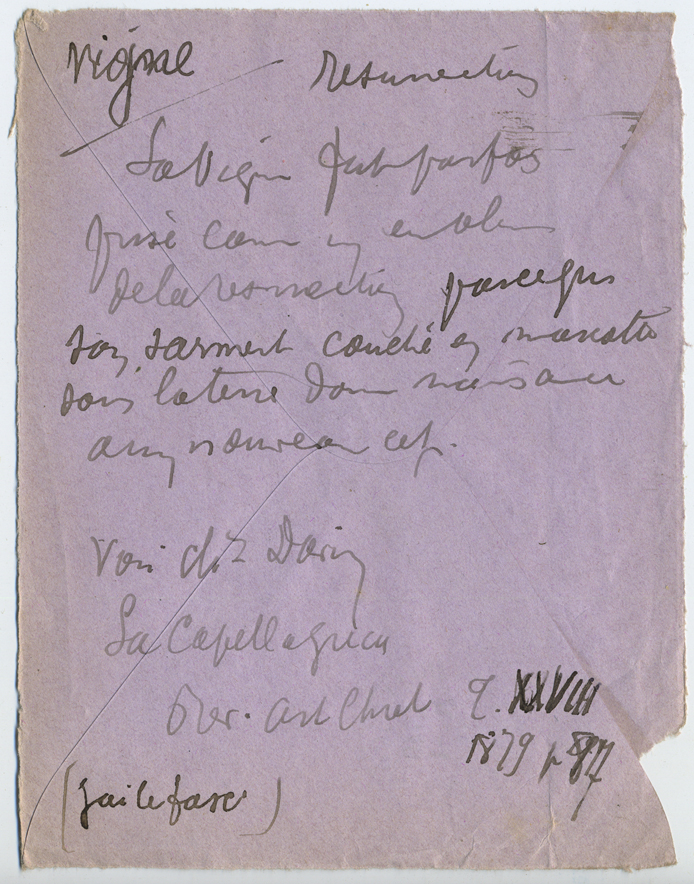 Vigne Resurrection
La Vigne fut parfois
prise comme un emblem
de la resurrection parce que
son sarment couché en
sous la terre donne naissance
a un nouveau cep.
Voir ch. Z
La Capella greca
Rev. Art Chret T. XXVIII
1879 p 87
(j'ai le fasc)